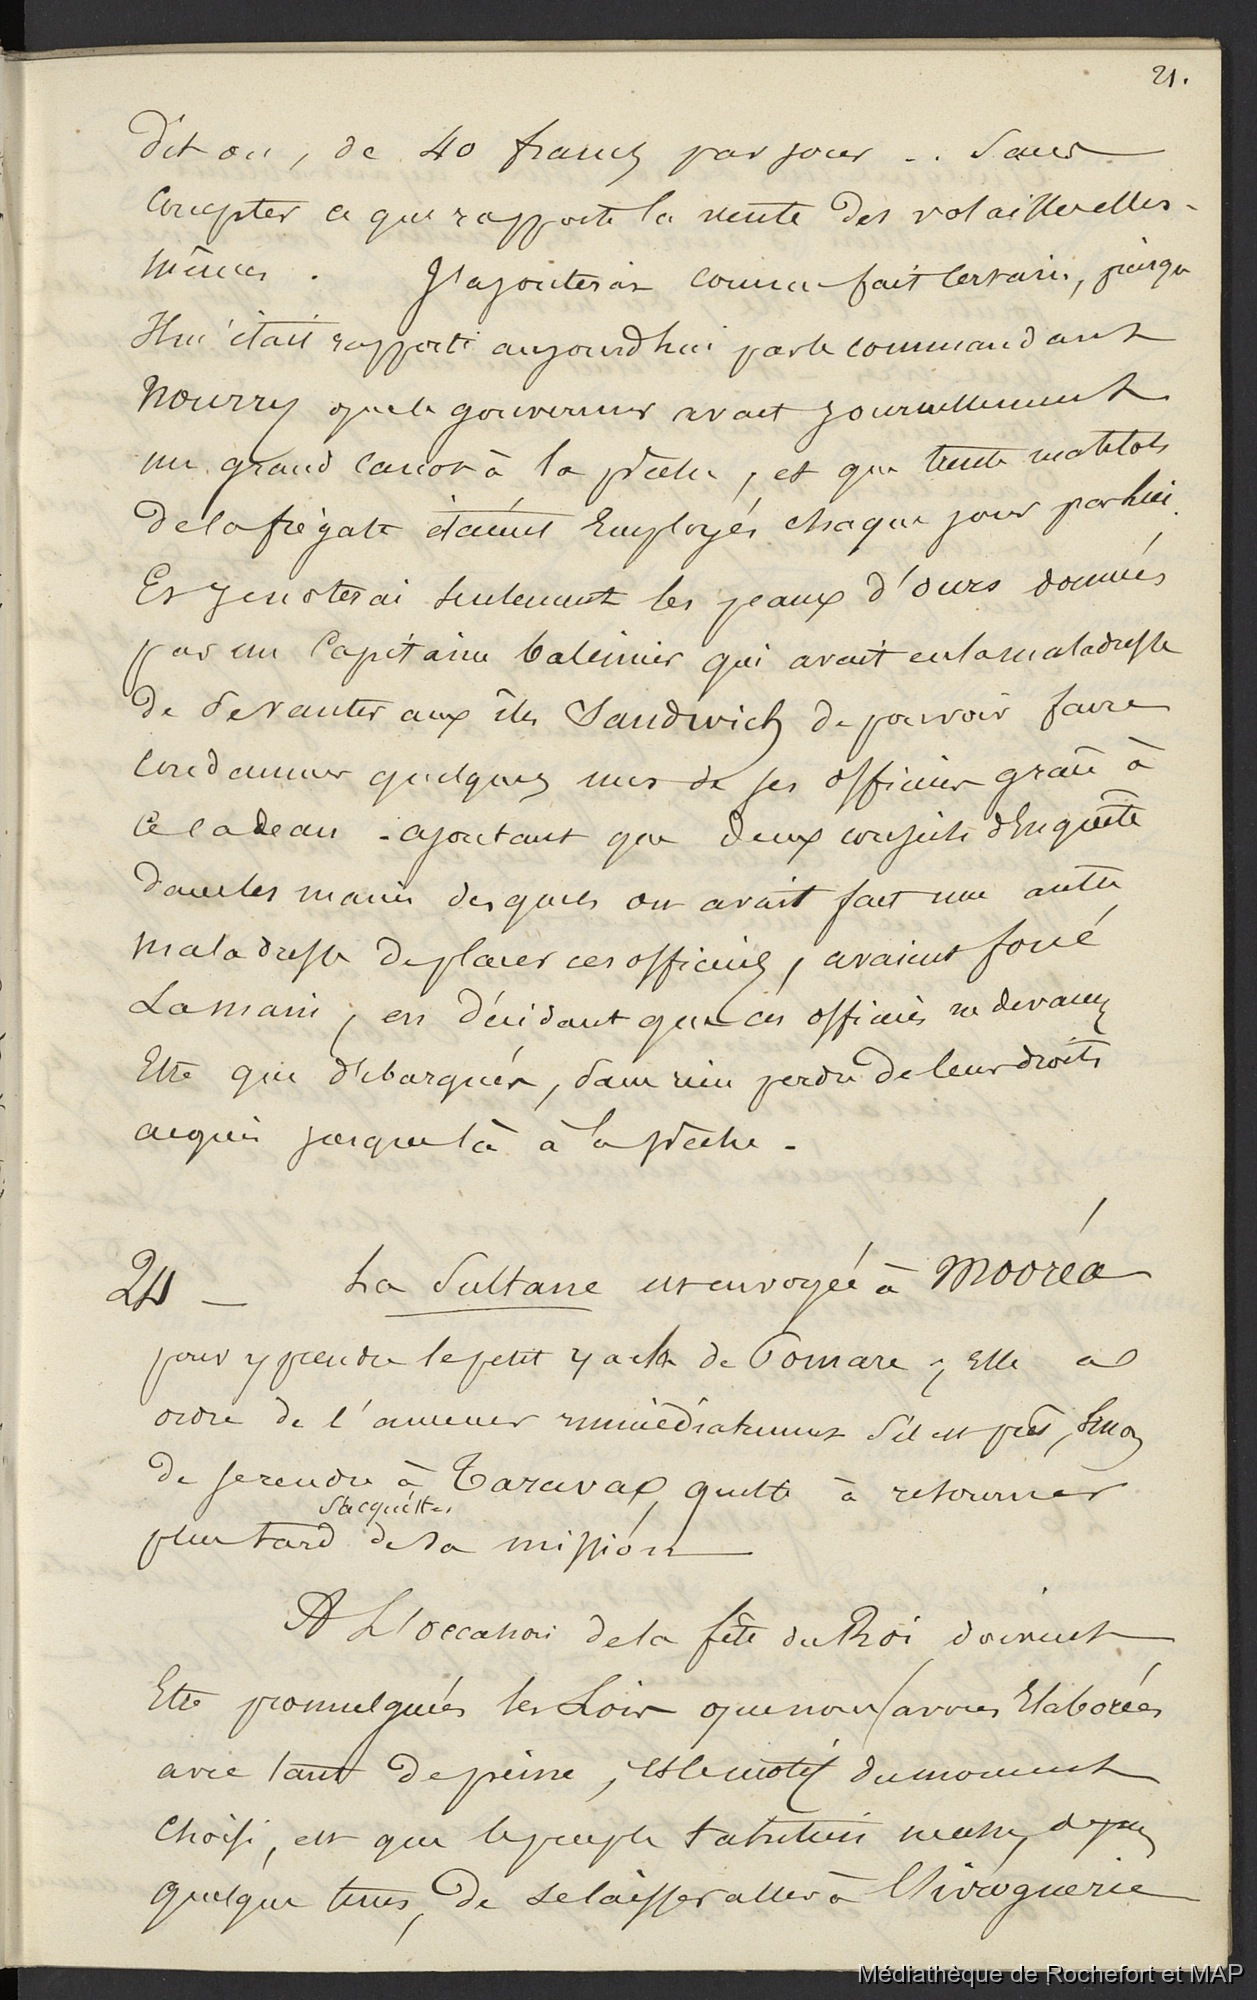 21.
dit on, de 40 francs par jour .. Sans
Compter ce que rapporte la vente des volailles elles-
mêmes . J'ajouterai comme fait certain, puisqu
Il m'était rapporté aujourdhui par le commandant
Nourry que le gouverneur avait journellement
un grand canot à la pêche, et que trente matelots
de la frégate étaient Employés chaque jour par lui.
Et je noterai seulement les peaux d'ours données
par un Capitaine baleinier qui avait eu la maladresse
de se vanter aux îles Sandwich de pouvoir faire
condamner quelques uns de ses officiers grâce à
ce cadeau - ajoutant que deux conseils d'Enquête
dans les mains desquels on avait fait une autre
maladresse de placer ces officiers, avaient forcé
La main, en décidant que ces officiers ne devaient
Etre que débarqués, sans rien perdre de leurs droits
acquis jusque là à la pêche -
24 — La Sultane est envoyée à Mooréa
pour y prendre le petit yacht de Pomare ; Elle a
ordre de l'amener immédiatement s'il est prêt, Sinon
de se rendre à Taravao, quitte à retourner
S'acquitter
plus tard de sa mission
A L'occasion de la fête du Roi doivent
Etre promulguées les Lois que nous avons Elaborées
avec tant de peine ; et le motif du moment
choisi, est que le peuple tahitien menace depuis
quelque tems, de se laisser aller à l'ivrognerie
Médiathèque de Rochefort et MAP